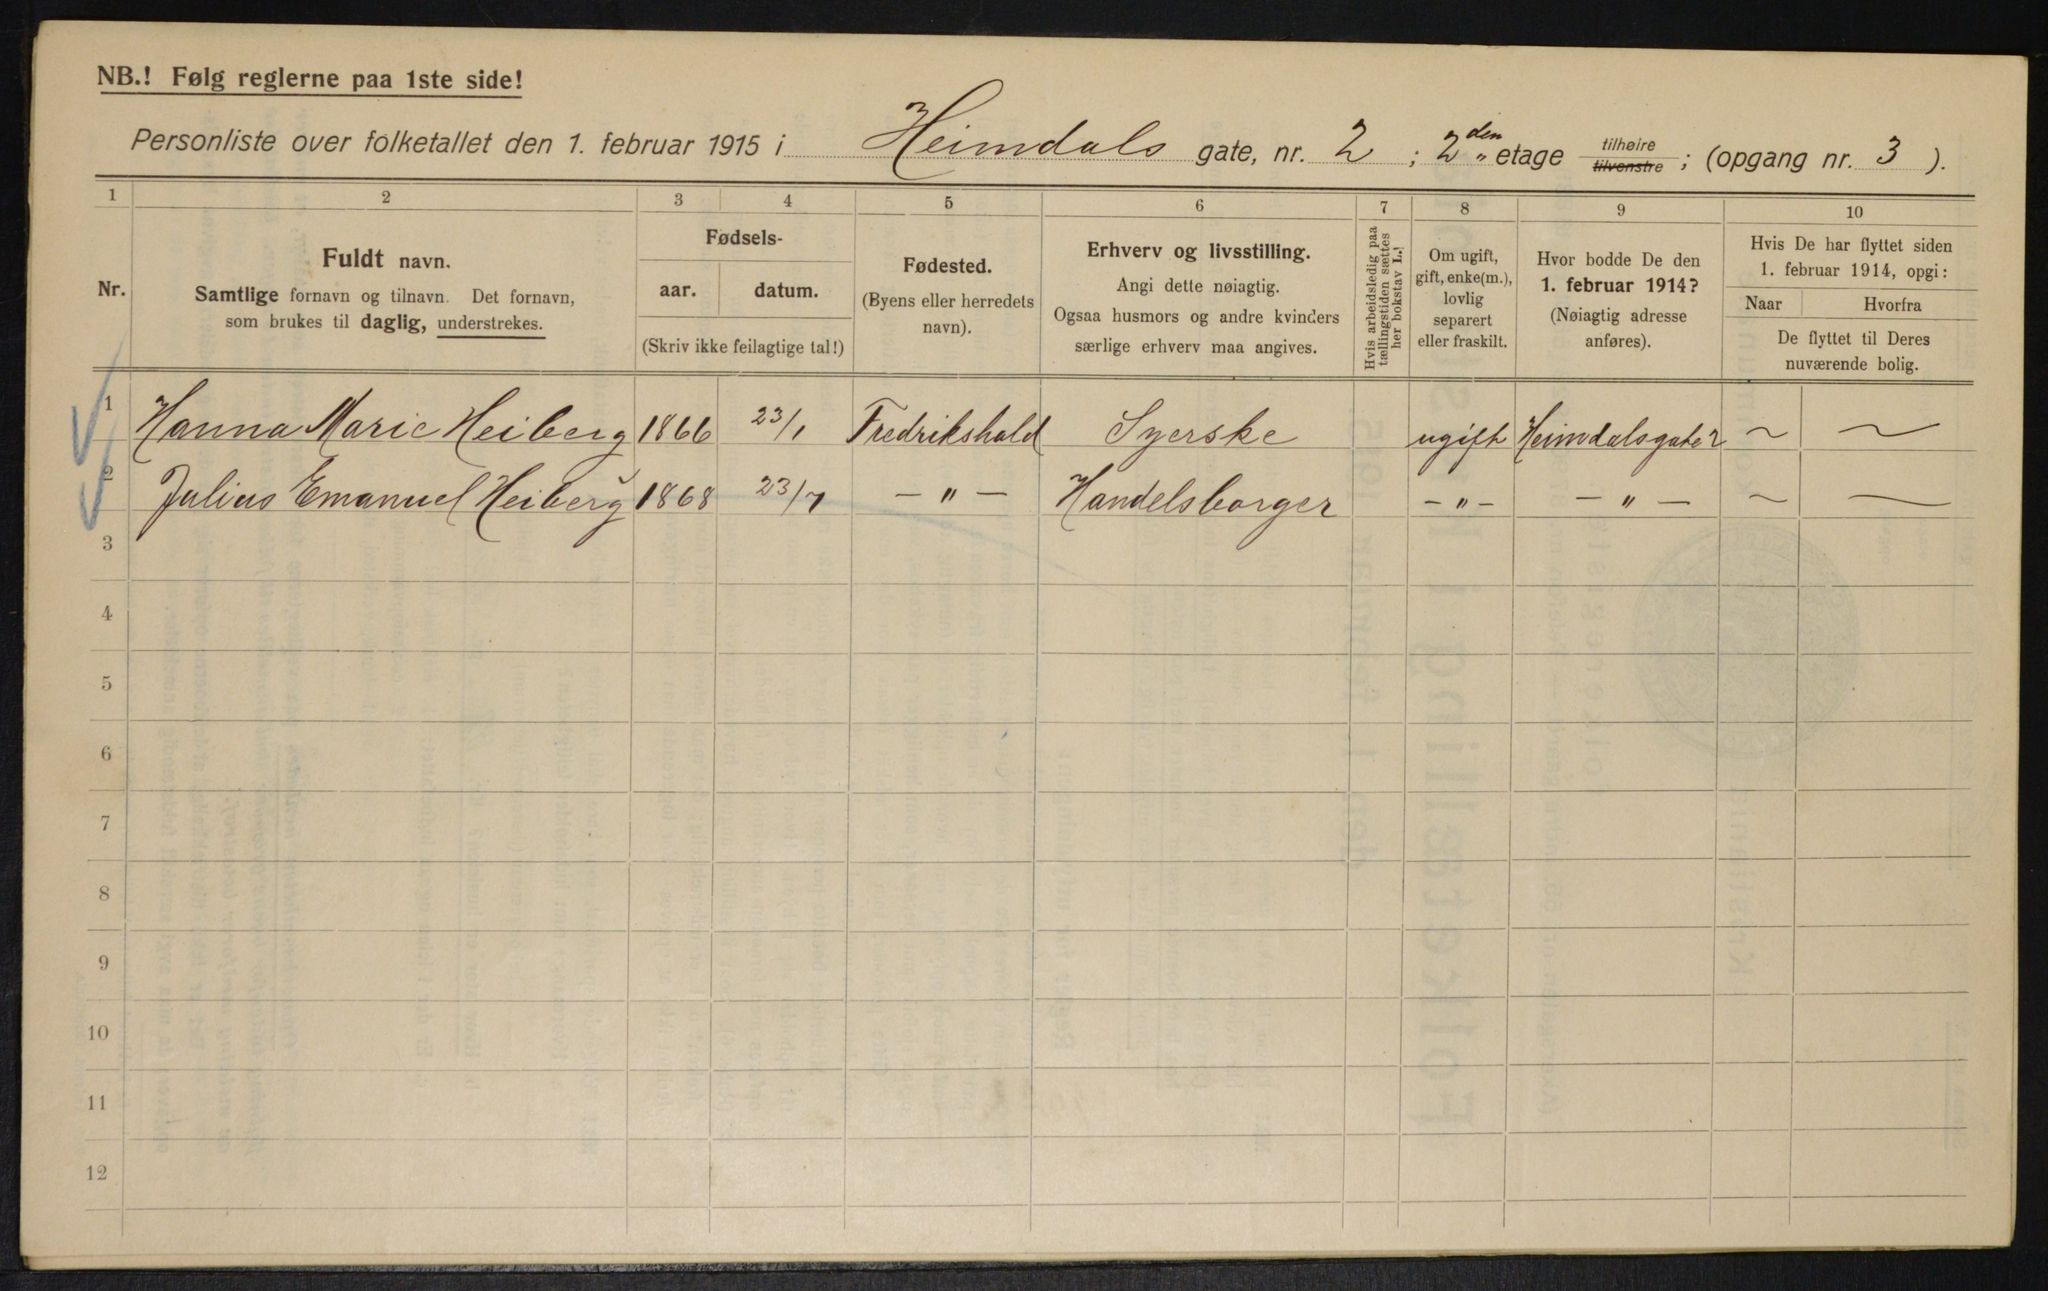 NB.! Følg reglerne paa 1ste side!
Personliste over folketallet den 1. februar 1915 i Heimdals gate, nr. 2 ; 2den etage tilhøire tilvenstre ; (opgang nr. 3 ).
1 2 3 4 5 6 7 8 9 10
Nr.
Fuldt navn.
Samtlige fornavn og tilnavn. Det fornavn,
som brukes til daglig, understrekes.
Fødsels-
aar. datum.
(Skriv ikke feilagtige tal!)
Fødested.
(Byens eller herredets
navn).
Erhverv og livsstilling.
Angi dette nøiagtig.
Ogsaa husmors og andre kvinders
særlige erhverv maa angives.
Hvis arbeidsledig paa
tællingstiden sættes
her bokstav L.
Om ugift,
gift, enke(m.),
lovlig
separert
eller fraskilt.
Hvor bodde De den
1. februar 1914?
(Nøiagtig adresse
anføres).
Hvis De har flyttet siden
1. februar 1914, opgi:
Naar Hvorfra
De flyttet til Deres
nuværende bolig.
1 Hanna Marie Heiberg 1866 23/1 Fredrikshald Syerske ugift Heimdalsgate 2 ~ ~
2 Julius Emanuel Heiberg 1868 23/7 — " — Handelsborger — " — — " — ~ —
3
4
5
6
7
8
9
10
11
12